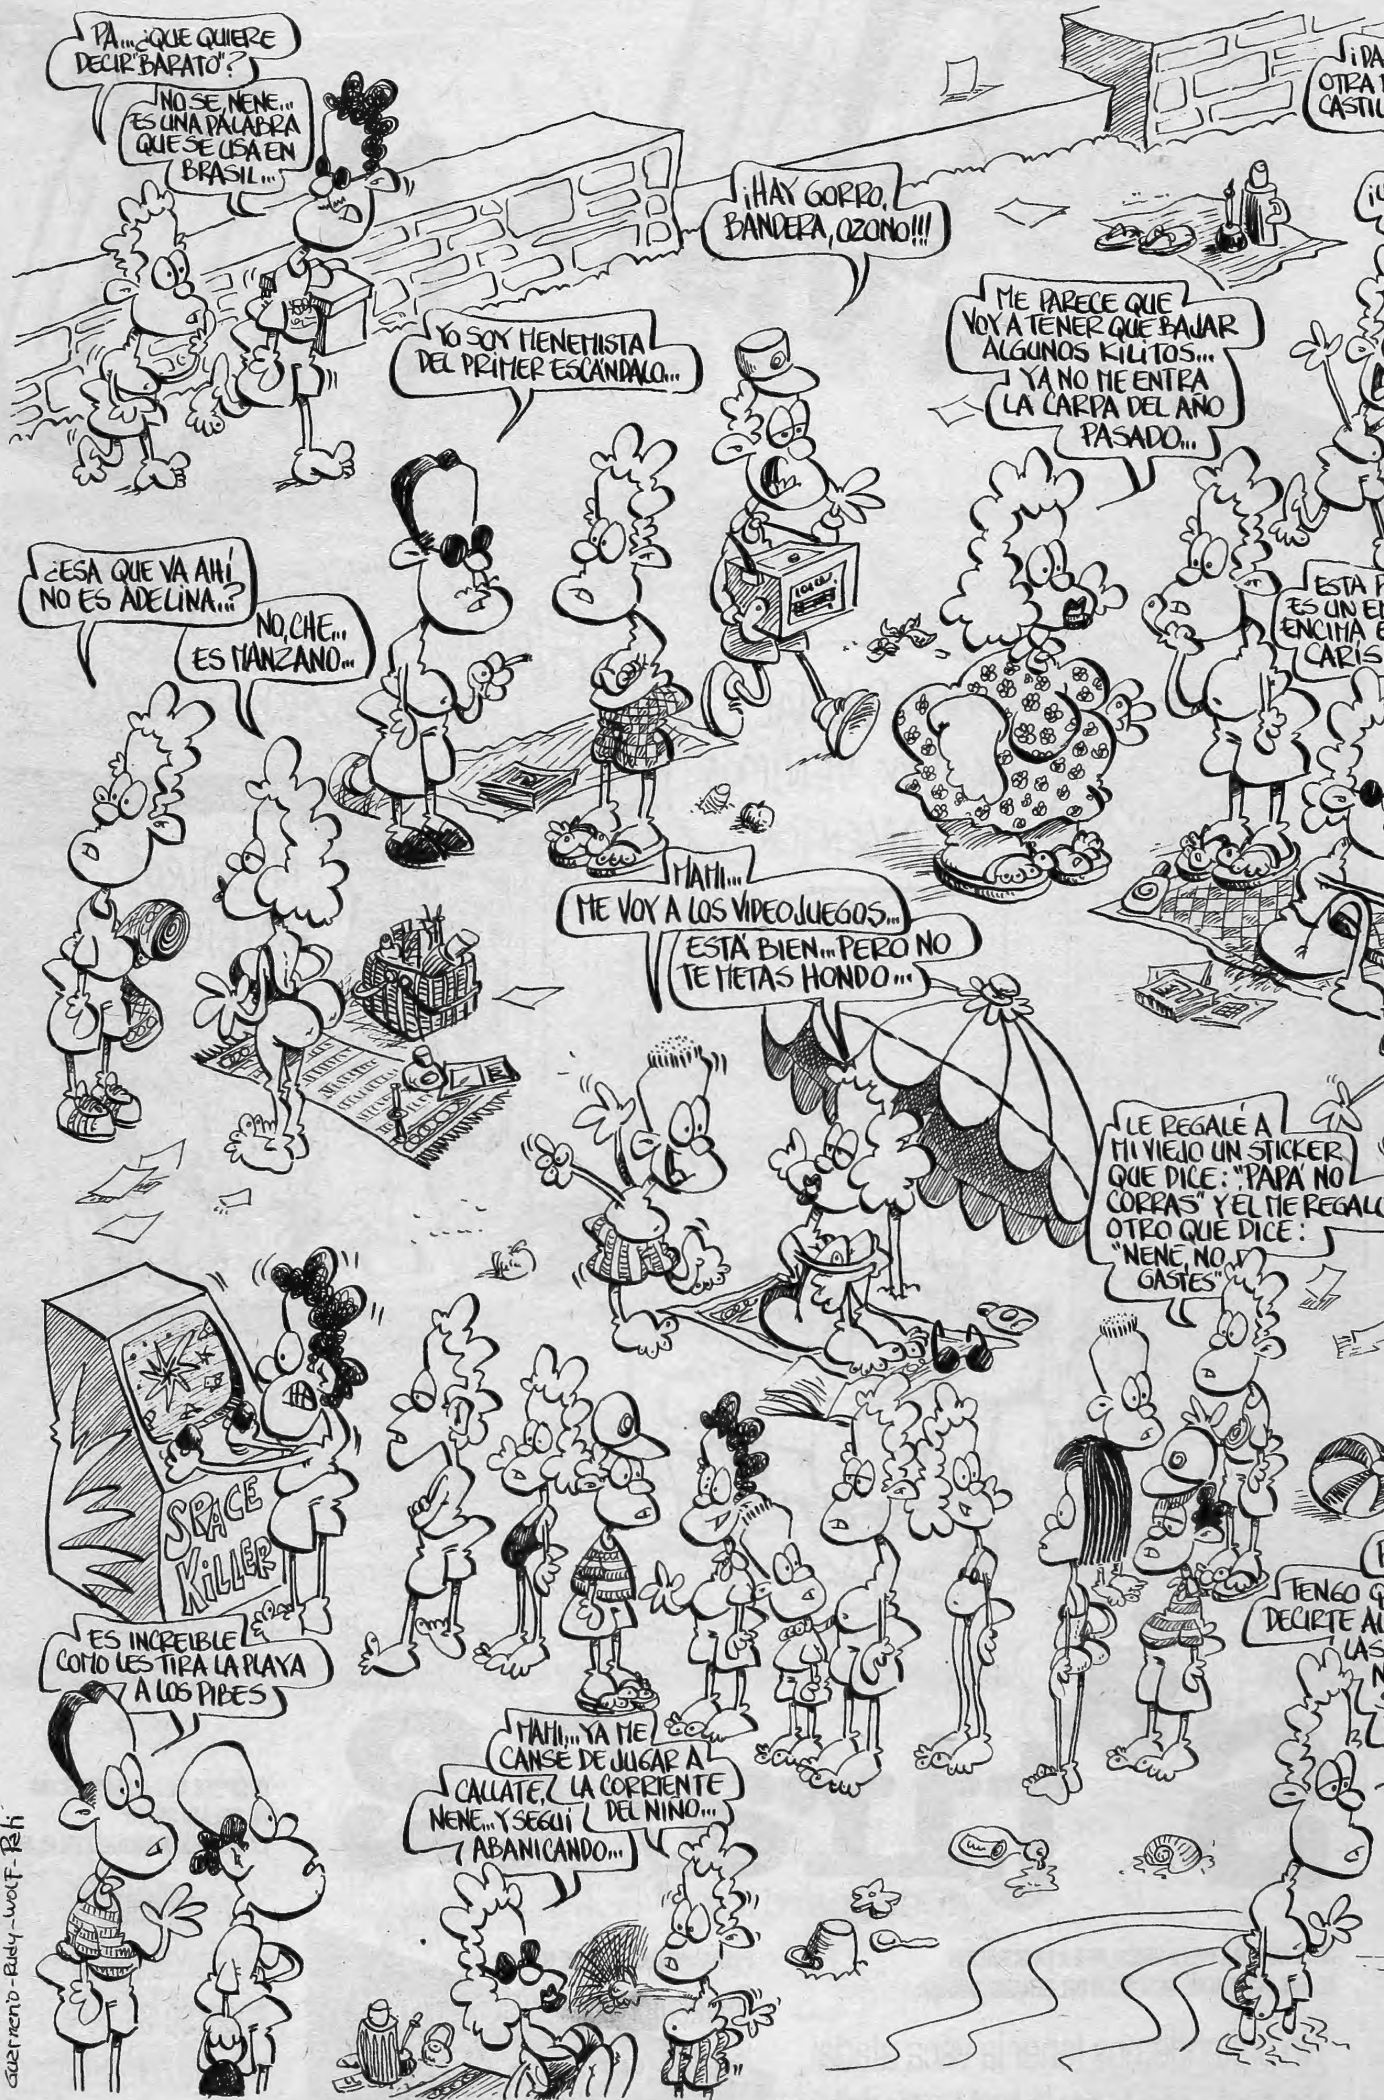 PA... ¿QUE QUIERE
DECIR "BARATO"?
NO SE, NENE...
ES UNA PALABRA
QUE SE USA EN
BRASIL...
¡HAY GORRO,
BANDERA, OZONO!!!
¡DA
OTRA
CASTIL
YO SOY MENEMISTA
DEL PRIMER ESCANDALO...
ME PARECE QUE
VOY A TENER QUE BAJAR
ALGUNOS KILITOS...
YA NO ME ENTRA
LA CARPA DEL AÑO
PASADO...
¿ESA QUE VA AHÍ
NO ES ADELINA..?
NO, CHE...
ES MANZANO...
ESTA P
ES UN EN
ENCIMA E
CARIS
MAMI...
ME VOY A LOS VIDEOJUEGOS...
ESTÁ BIEN... PERO NO
TE METAS HONDO...
LE REGALÉ A
MI VIEJO UN STICKER
QUE DICE: "PAPÁ NO
CORRAS" Y EL ME REGALO
OTRO QUE DICE:
"NENE, NO
GASTES"
SPACE
KILLER
ES INCREIBLE
COMO LES TIRA LA PLAYA
A LOS PIBES
TENGO Q
DECIRTE AL
LAS
N
MAMI... YA ME
CANSÉ DE JUGAR A
LA CORRIENTE
DEL NIÑO...
CALLATE,
NENE... Y SEGUÍ
ABANICANDO...
Guerrerio-Rudy-Wolf-Peti